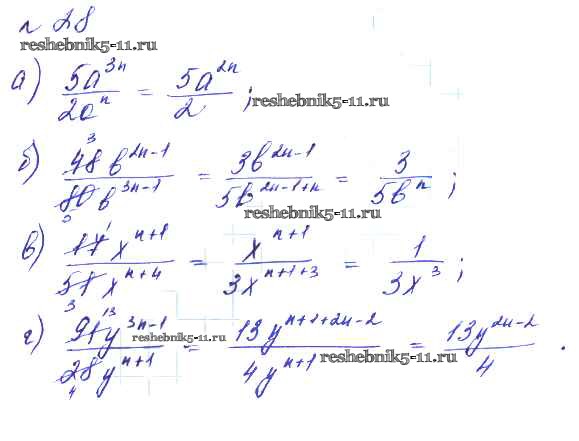 n 28
reshebnik5-11.ru
а) 5a^3n / 2a^n = 5a^2n / 2 ;
reshebnik5-11.ru
б) 48 3 b^2n-1 / 80 5 b^3n-1 = 3b^2n-1 / 5b^2n-1+n = 3 / 5b^n ;
reshebnik5-11.ru
в) 17 1 x^n+1 / 51 3 x^n+4 = x^n+1 / 3x^n+1+3 = 1 / 3x^3 ;
г) 91 13 y^3n-1 / 28 4 y^n+1 = 13y^n+1+2n-2 / 4y^n+1 = 13y^2n-2 / 4 .
reshebnik5-11.ru
reshebnik5-11.ru